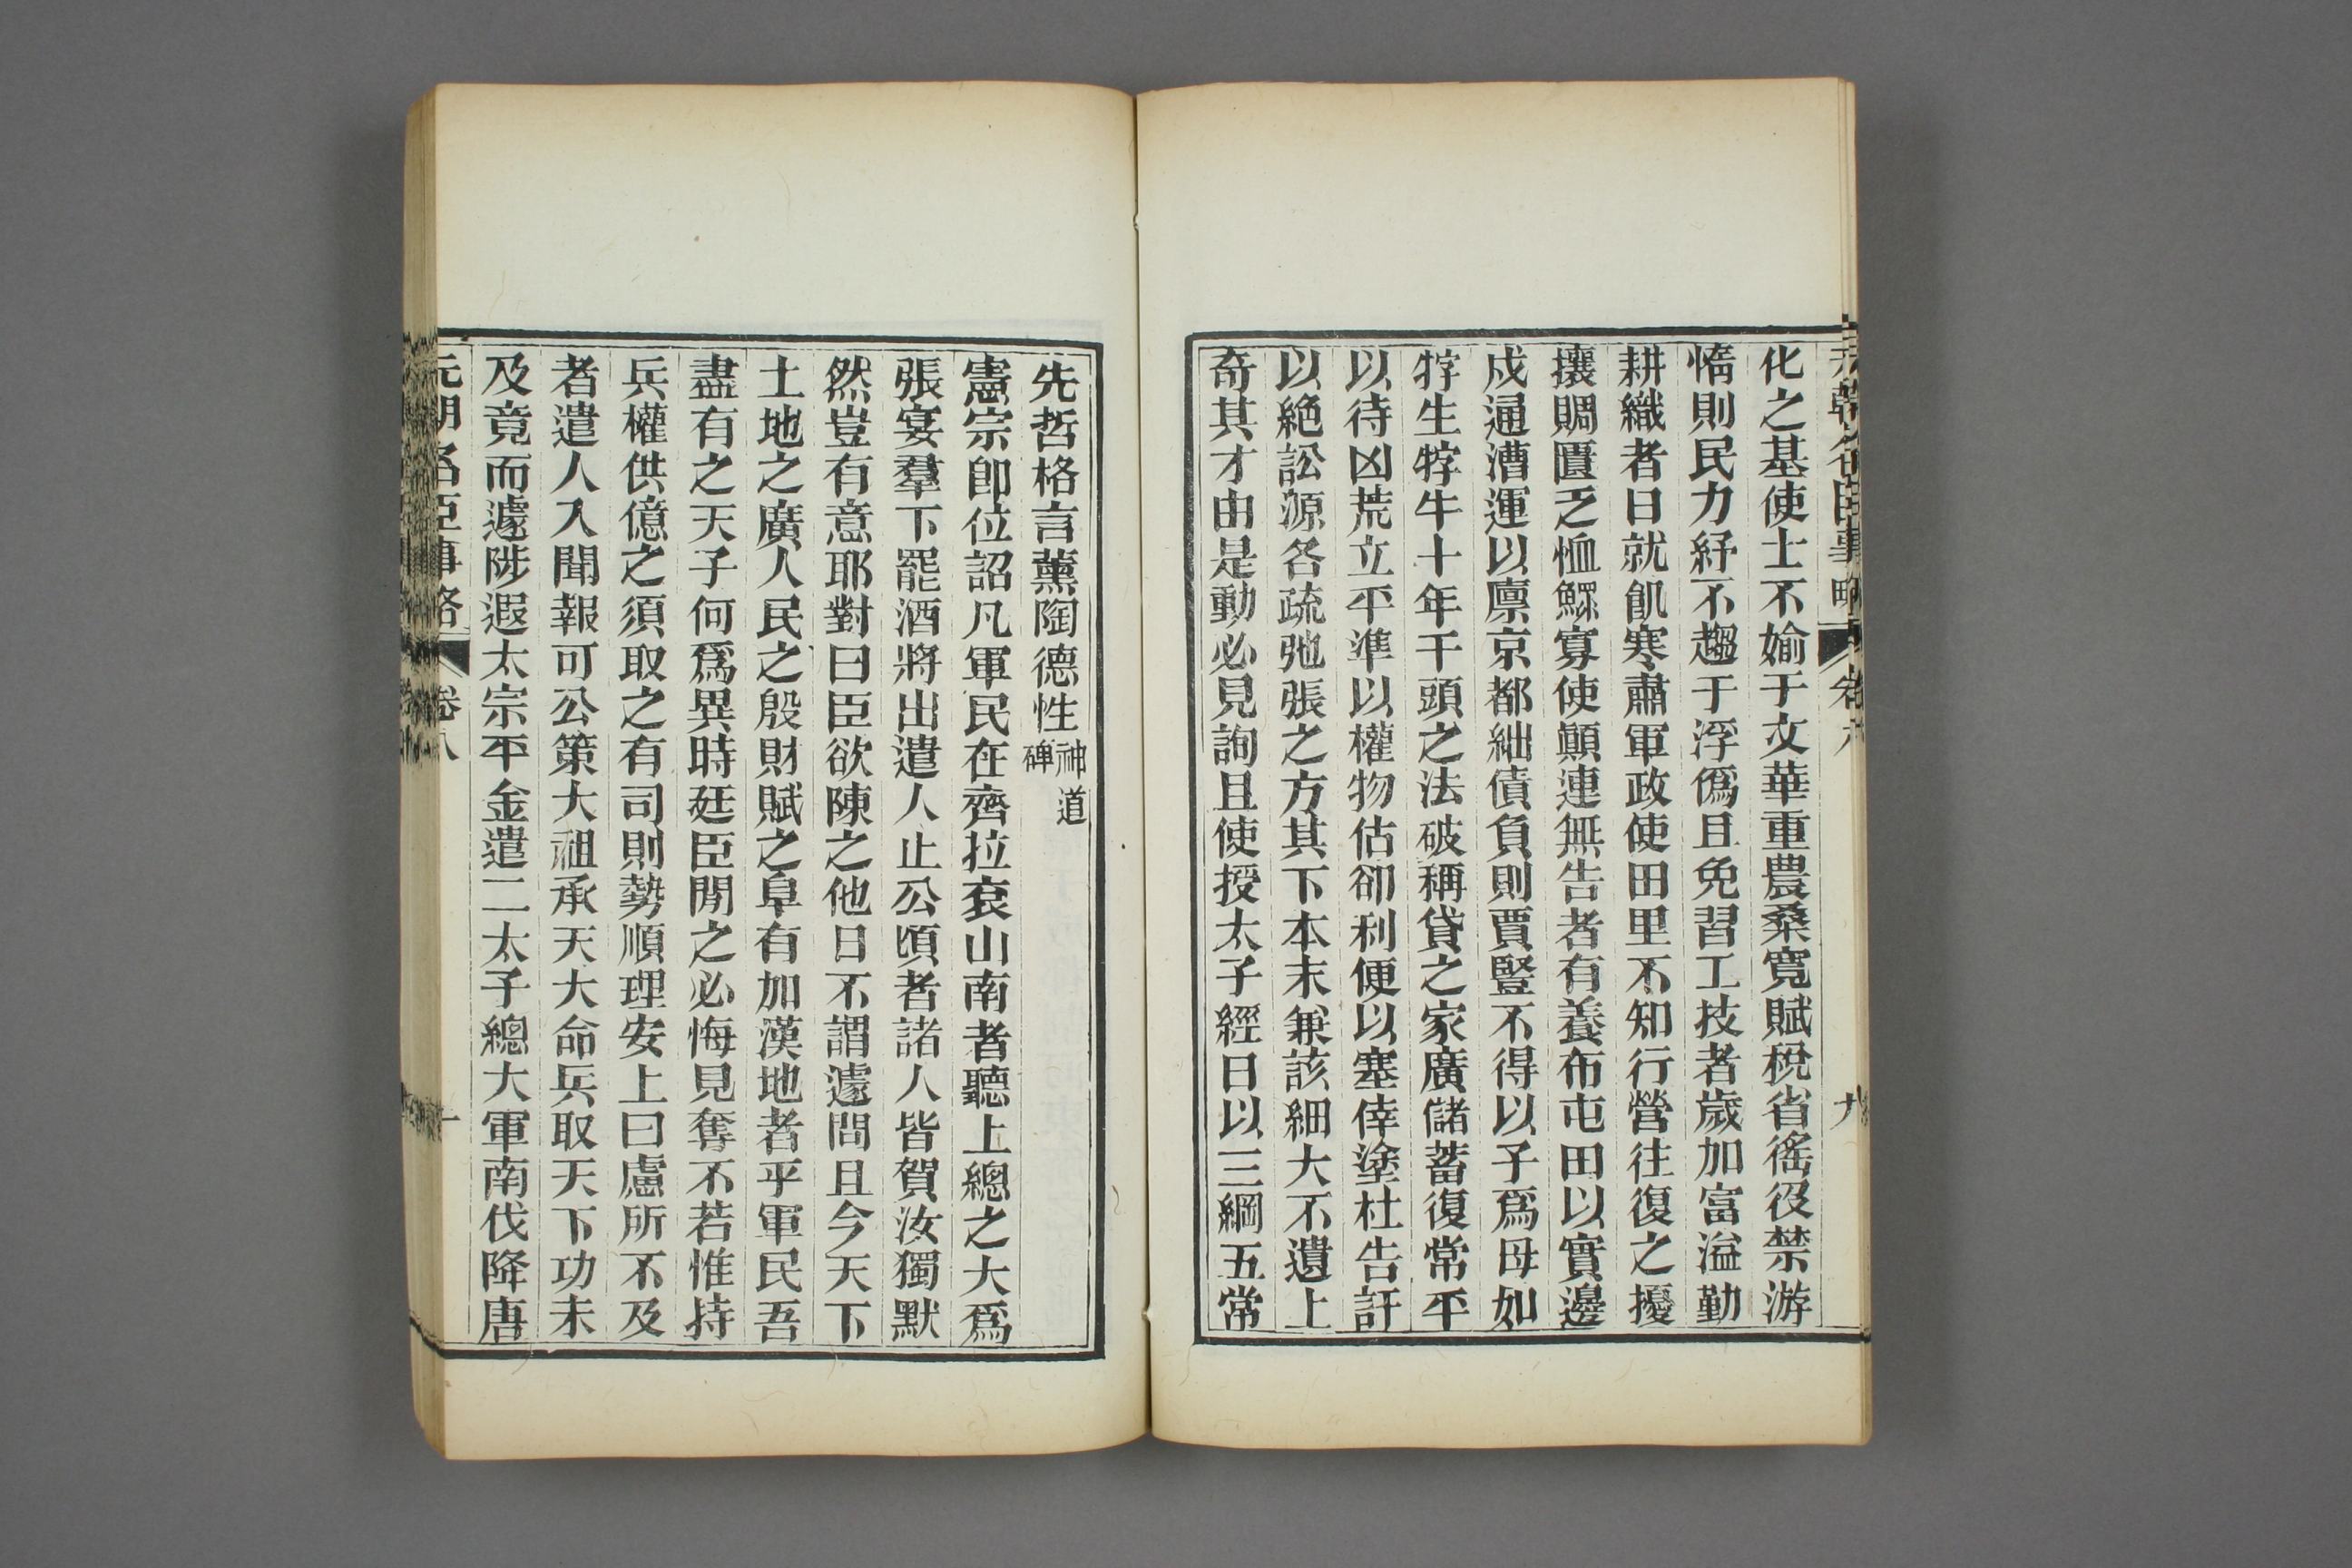 元朝名臣事略 卷八 九
化之基使士不媮于文華重農桑寬賦稅省徭役禁游
惰則民力紓不趨于浮僞且免習工技者歲加富溢勤
耕織者日就飢寒肅軍政使田里不知行營往復之擾
攘賙匱乏恤鰥寡使顛連無告者有養布屯田以實邊
戍通漕運以廪京都絀債負則賈豎不得以子爲母如
牸生牸牛十年千頭之法破稱貸之家廣儲蓄復常平
以待凶荒立平準以權物估卻利便以塞倖塗杜告訐
以絶訟源各疏弛張之方其下本末兼該細大不遺上
奇其才由是動必見詢且使授太子經日以三綱五常
先哲格言薰陶德性神道碑
憲宗卽位詔凡軍民在齊拉衮山南者聽上總之大爲
張宴羣下罷酒將出遣人止公頃者諸人皆賀汝獨默
然豈有意耶對曰臣欲陳之他日不謂遽問且今天下
土地之廣人民之殷財賦之阜有加漢地者乎軍民吾
盡有之天子何爲異時廷臣閒之必悔見奪不若惟持
兵權供億之須取之有司則勢順理安上曰慮所不及
者遣人入聞報可公策大祖承天大命兵取天下功未
及竟而遽陟遐太宗平金遣二太子總大軍南伐降唐
元朝名臣事略 卷八 十